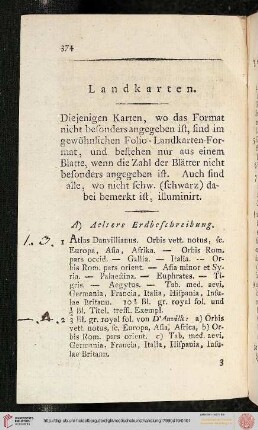 674
Landkarten.
Diejenigen Karten, wo das Format
nicht beſonders angegeben iſt, ſind im
gewöhnlichen Folio-Landkarten-For-
mat, und beſtehen nur aus einem
Blatte, wenn die Zahl der Blätter nicht
beſonders angegeben iſt. Auch ſind
alle, wo nicht ſchw. (ſchwarz) da-
bei bemerkt iſt, illuminirt.
A) Aeltere Erdbeſchreibung.
1 Atlas Danvillianus. Orbis vett. notus, ſc.
Europa, Aſia, Afrika. — Orbis Rom.
pars occid. — Gallia. — Italia. — Or-
bis Rom. pars orient. — Aſia minor et Sy-
ria. — Palaeſtina. — Euphrates. — Ti-
gris — Aegyptus. — Tab. med. aevi,
Germania, Francia, Italia, Hiſpania, Inſu-
lae Britann. 10½ Bl. gr. royal fol. und
½ Bl. Titel. treffl. Exempl.
2 3 Bl. gr. royal fol. von D'Anville: a) Orbis
vett. notus, ſc. Europa, Aſia, Africa, b) Or-
bis Rom. pars orient. c) Tab. med. aevi,
Germania, Francia, Italia, Hiſpania, Inſu-
lae Britann.
3